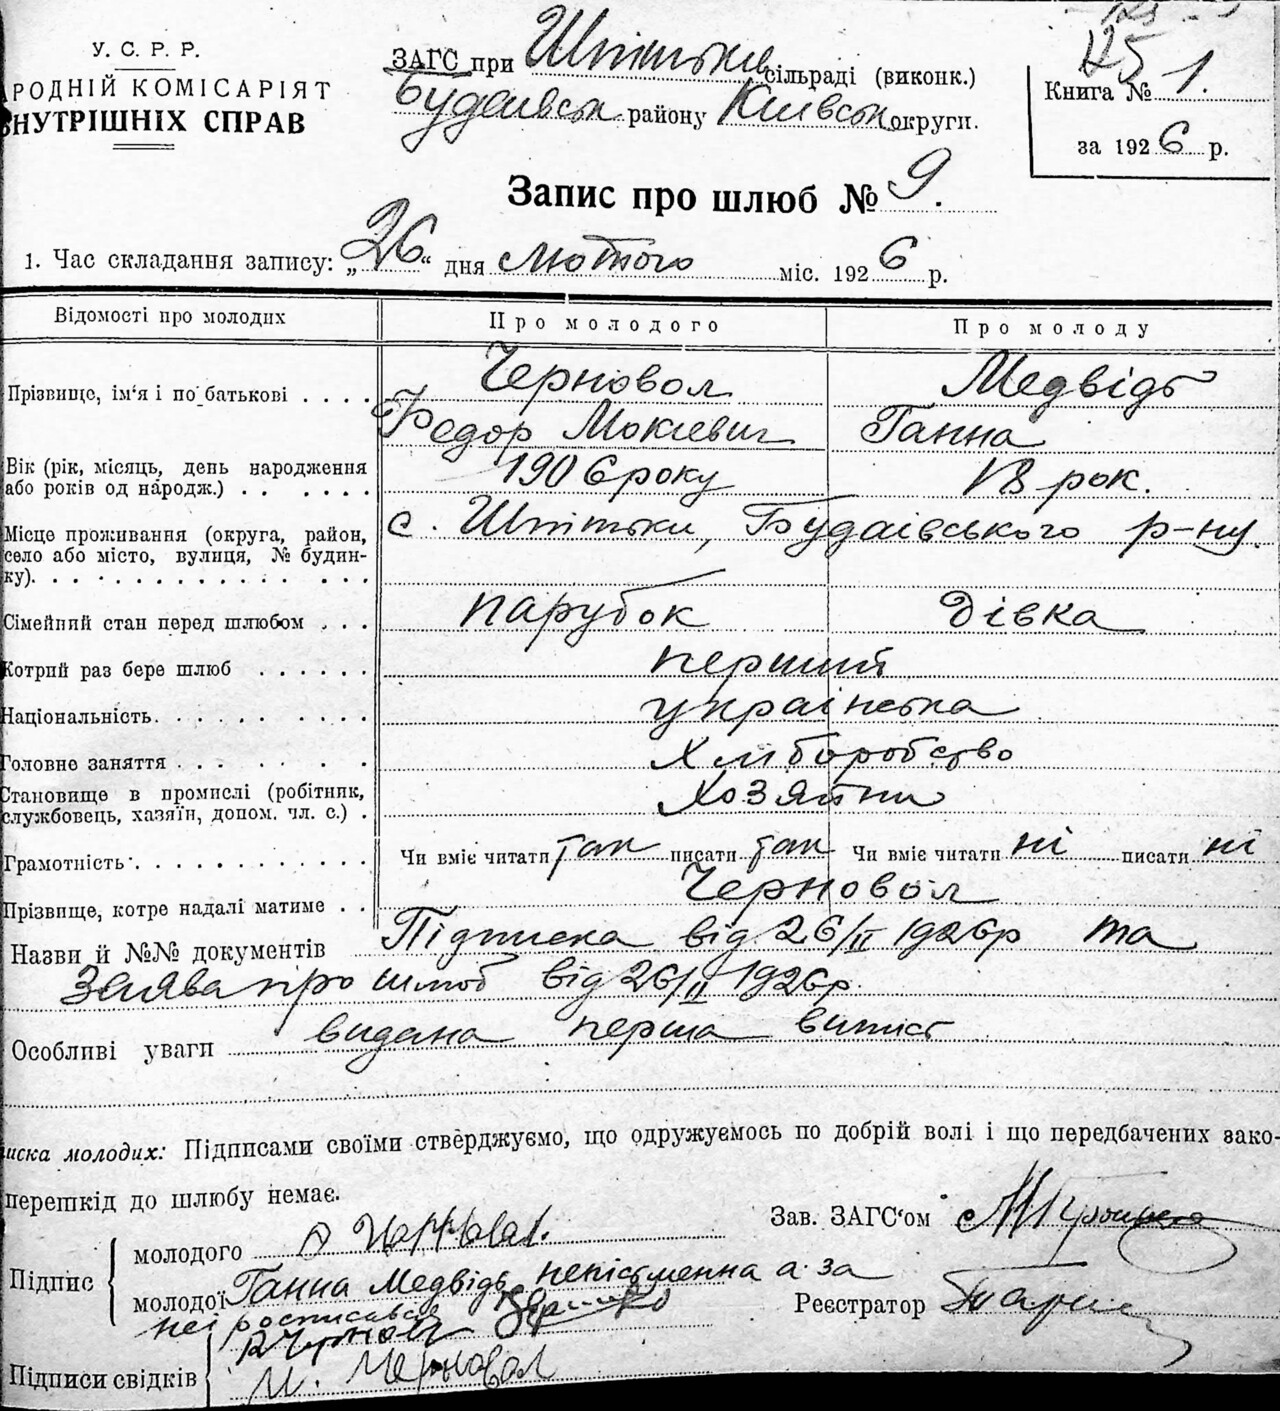 У. С. Р. Р.
РОДНІЙ КОМІСАРІЯТ
ВНУТРІШНІХ СПРАВ
ЗАГС при Шпітьків сільраді (виконк.)
Будаївськ району Київськ округи.
125
Книга № 1.
за 1926 р.
Запис про шлюб № 9.
1. Час складання запису: „26“ дня лютого міс. 1926 р.
Відомості про молодих Про молодого Про молоду
Прізвище, ім'я і по батькові . . . . Черновол Медвідь
Федор Мокієвич Ганна
Вік (рік, місяць, день народження 1906 року 18 рок.
або років од народж.) . . . . . .
Місце проживання (округа, район, с. Шпітьки, Будаівського р-ну.
село або місто, вулиця, № будин-
ку). . . . . . . . . . . . . . .
Сімейний стан перед шлюбом . . . парубок Дівка
Котрий раз бере шлюб . . . . . . перший
Національність. . . . . . . . . . українська
Головне заняття . . . . . . . . Хліборобство
Становище в промислі (робітник, Хозяйни
службовець, хазяїн, допом. чл. с.) .
Грамотність . . . . . . . . . . . . Чи вміє читати так писати так Чи вміє читати ні писати ні
Прізвище, котре надалі матиме . . Черновол
Назви й №№ документів Підписка від 26/II 1926р та
Заява про шлюб від 26/II 1926р.
Особливі уваги видана перша випись
иска молодих: Підписами своїми стверджуємо, що одружуємось по добрій волі і що передбачених зако-
перешкід до шлюбу немає.
Зав. ЗАГС'ом
Підпис молодого
молодої Ганна Медвідь неписьменна а за
неї росписався
Реєстратор
Підписи свідків
И. Черновол